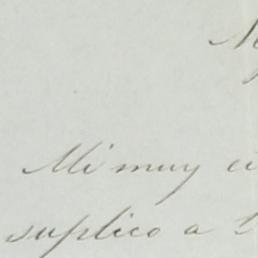 Mi muy
suplico a